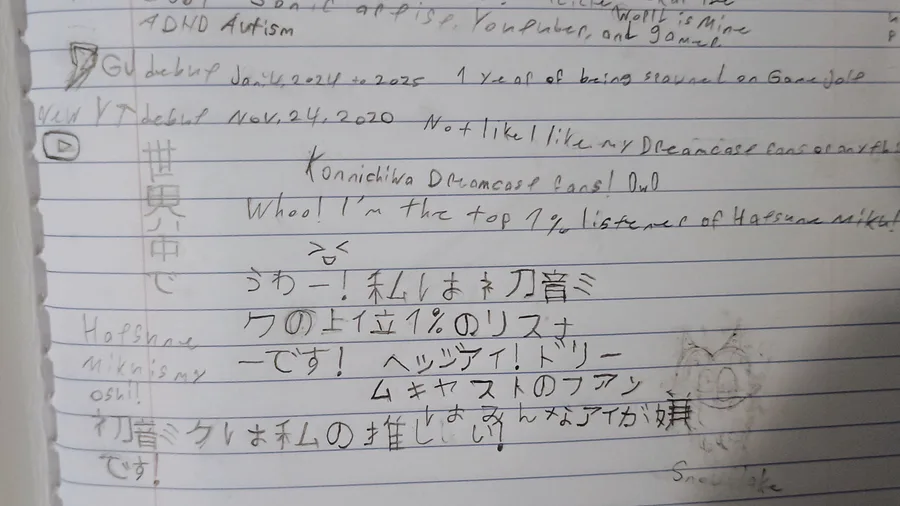 World is Mine
ADHD Autism
Sonic artist, Youtuber, and gamer.
GJ debut Jan.14, 2024 to 2025 1 year of being stayned on Gamejolt
New YT debut Nov, 24, 2020 Not like I like my Dreamcast fans or anything
Konnichiwa Dreamcast fans! OwO
Whoo! I'm the top 1% listener of Hatsune Miku!
世界中で
うわー!私は初音ミ
クの上位1%のリスナ
ーです! ヘッジアイ!ドリー
ムキャストのファン
はみんなアイが嫌
い!
Hatsune
Miku is my
oshi!
初音ミクは私の推し
です!